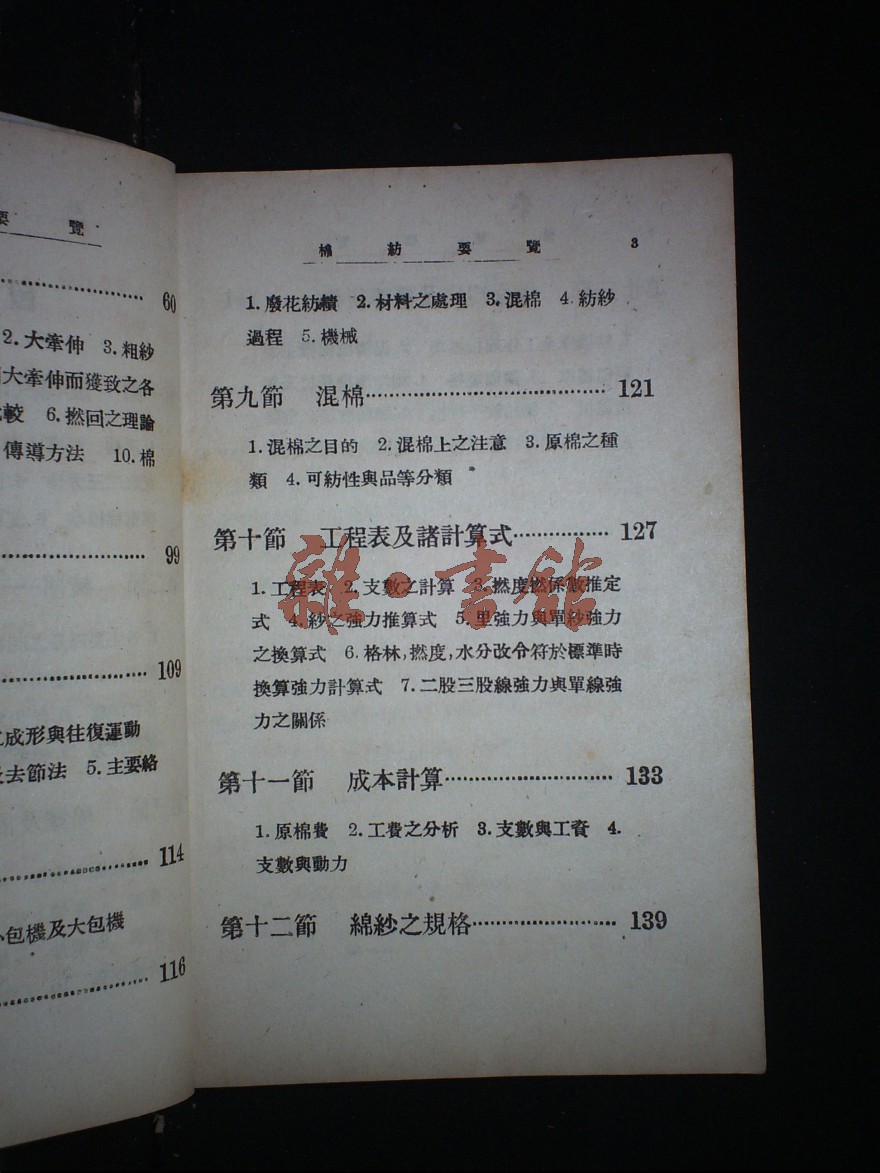 覽
60
2.大牽伸 3.粗紗
大牽伸而獲致之各
較 6.撚回之理論
傳導方法 10.棉
99
109
成形與往復運動
去節法 5.主要絡
114
包機及大包機
116
棉紡要覽 3
1.廢花紡績 2.材料之處理 3.混棉 4.紡紗
過程 5.機械
第九節 混棉 121
1.混棉之目的 2.混棉上之注意 3.原棉之種
類 4.可紡性與品等分類
第十節 工程表及諸計算式 127
1.工程表 2.支數之計算 3.撚度撚係數推定
式 4.紗之強力推算式 5.里強力與單紗強力
之換算式 6.格林,撚度,水分改令符於標準時
換算強力計算式 7.二股三股線強力與單線強
力之關係
第十一節 成本計算 133
1.原棉費 2.工費之分析 3.支數與工資 4.
支數與動力
第十二節 綿紗之規格 139
雜·書館